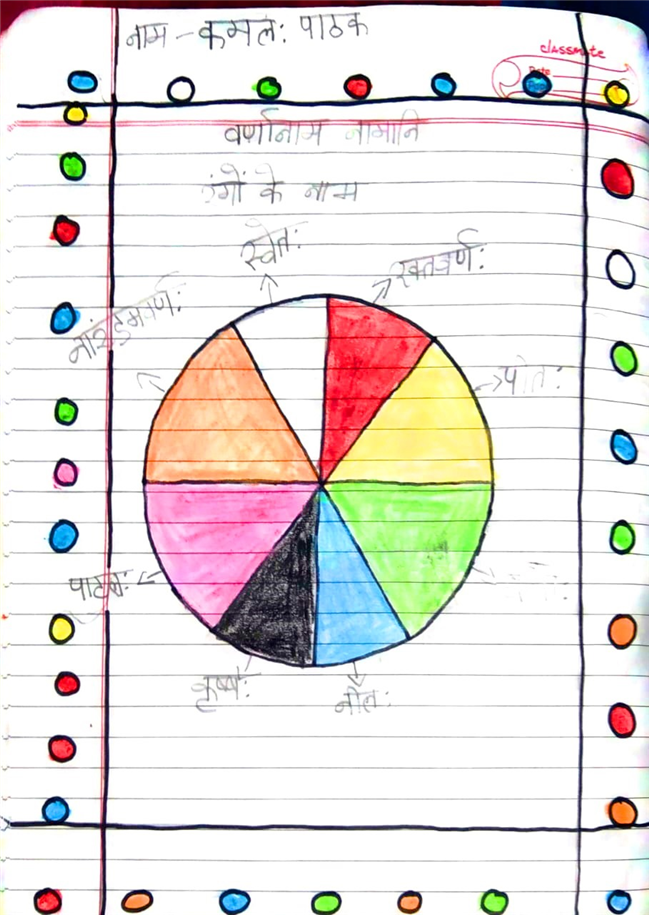 नाम - कमल: पाठक
classmate
Date
वर्णानाम नामानि
रंगों के नाम
स्वेत:
रक्तवर्ण:
पीत:
पाटल:
कृष्ण:
नील: